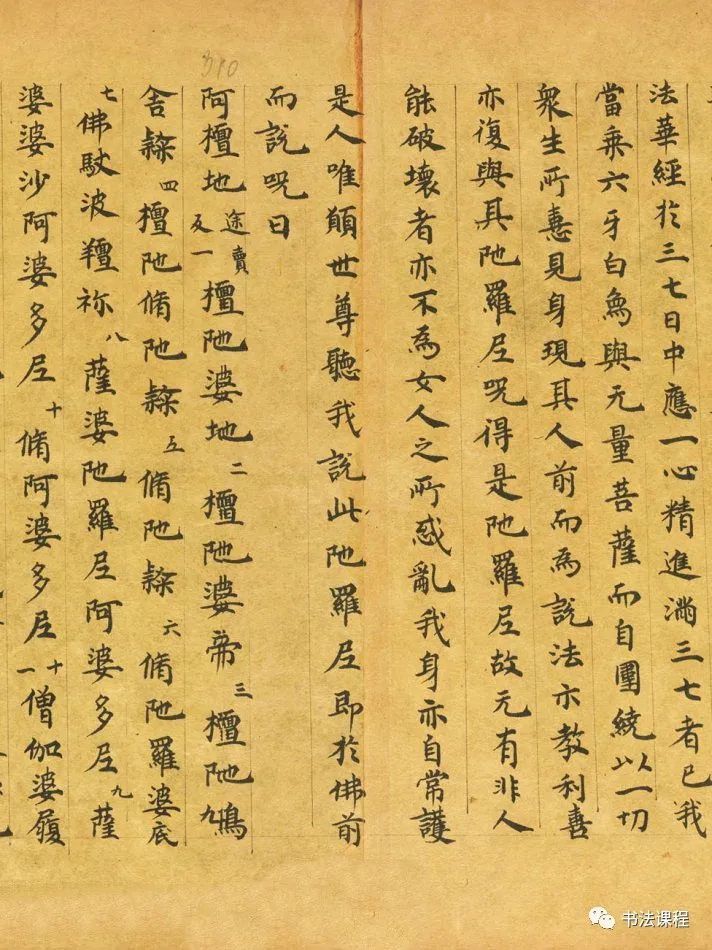 法華經於三七日中應一心精進滿三七者已我
當乘六牙白象與无量菩薩而自圍繞以一切
衆生所憙見身現其人前而為說法亦教利善
亦復與其陁羅尼呪得是陁羅尼故无有非人
能破壞者亦不為女人之所惑亂我身亦自常護
是人唯願世尊聽我說此陁羅尼即於佛前
而說呪曰
阿檀地途賣反一檀陁婆地二檀陁婆帝三檀陁鳩九
舍隸四檀陁脩陁隸五脩陁隸六脩陁羅婆底
七佛馱波羶祢八薩婆陁羅尼阿婆多尼九薩
婆婆沙阿婆多尼十脩阿婆多尼十一僧伽婆履
310
书法课程